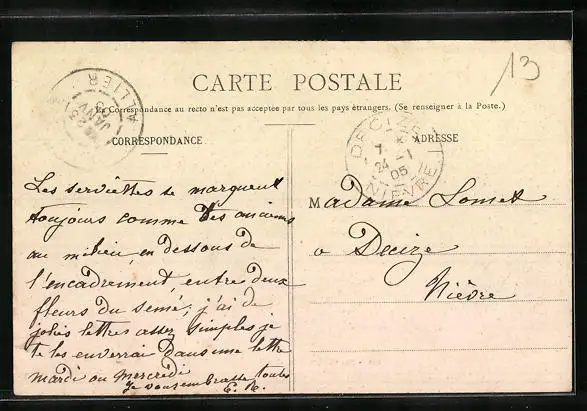 13
CARTE POSTALE
La Correspondance au recto n'est pas acceptée par tous les pays étrangers. (Se renseigner à la Poste.)
CORRESPONDANCE
ADRESSE
ALLIER
JANV
05
DECIZE
7
24 -1
05
NIÈVRE
Les serviettes se marquent
toujours comme les anciens
au milieu, en dessous de
l'encadrement, entre deux
fleurs du semé; j'ai de
jolies lettres assez simples je
te les enverrai dans une lettre
mardi ou mercredi
Je vous embrasse toutes
E. R.
Madame Lomet
à Decize
Nièvre